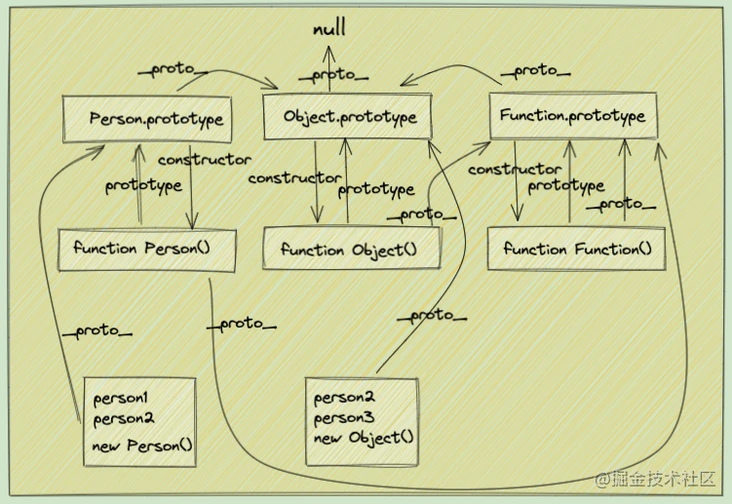 null
_proto_
_proto_
_proto_
Person.prototype
Object.prototype
Function.prototype
constructor
prototype
constructor
prototype
_proto_
constructor
prototype
_proto_
function Person()
function Object()
function Function()
_proto_
_proto_
_proto_
person1
person2
new Person()
person2
person3
new Object()
@掘金技术社区